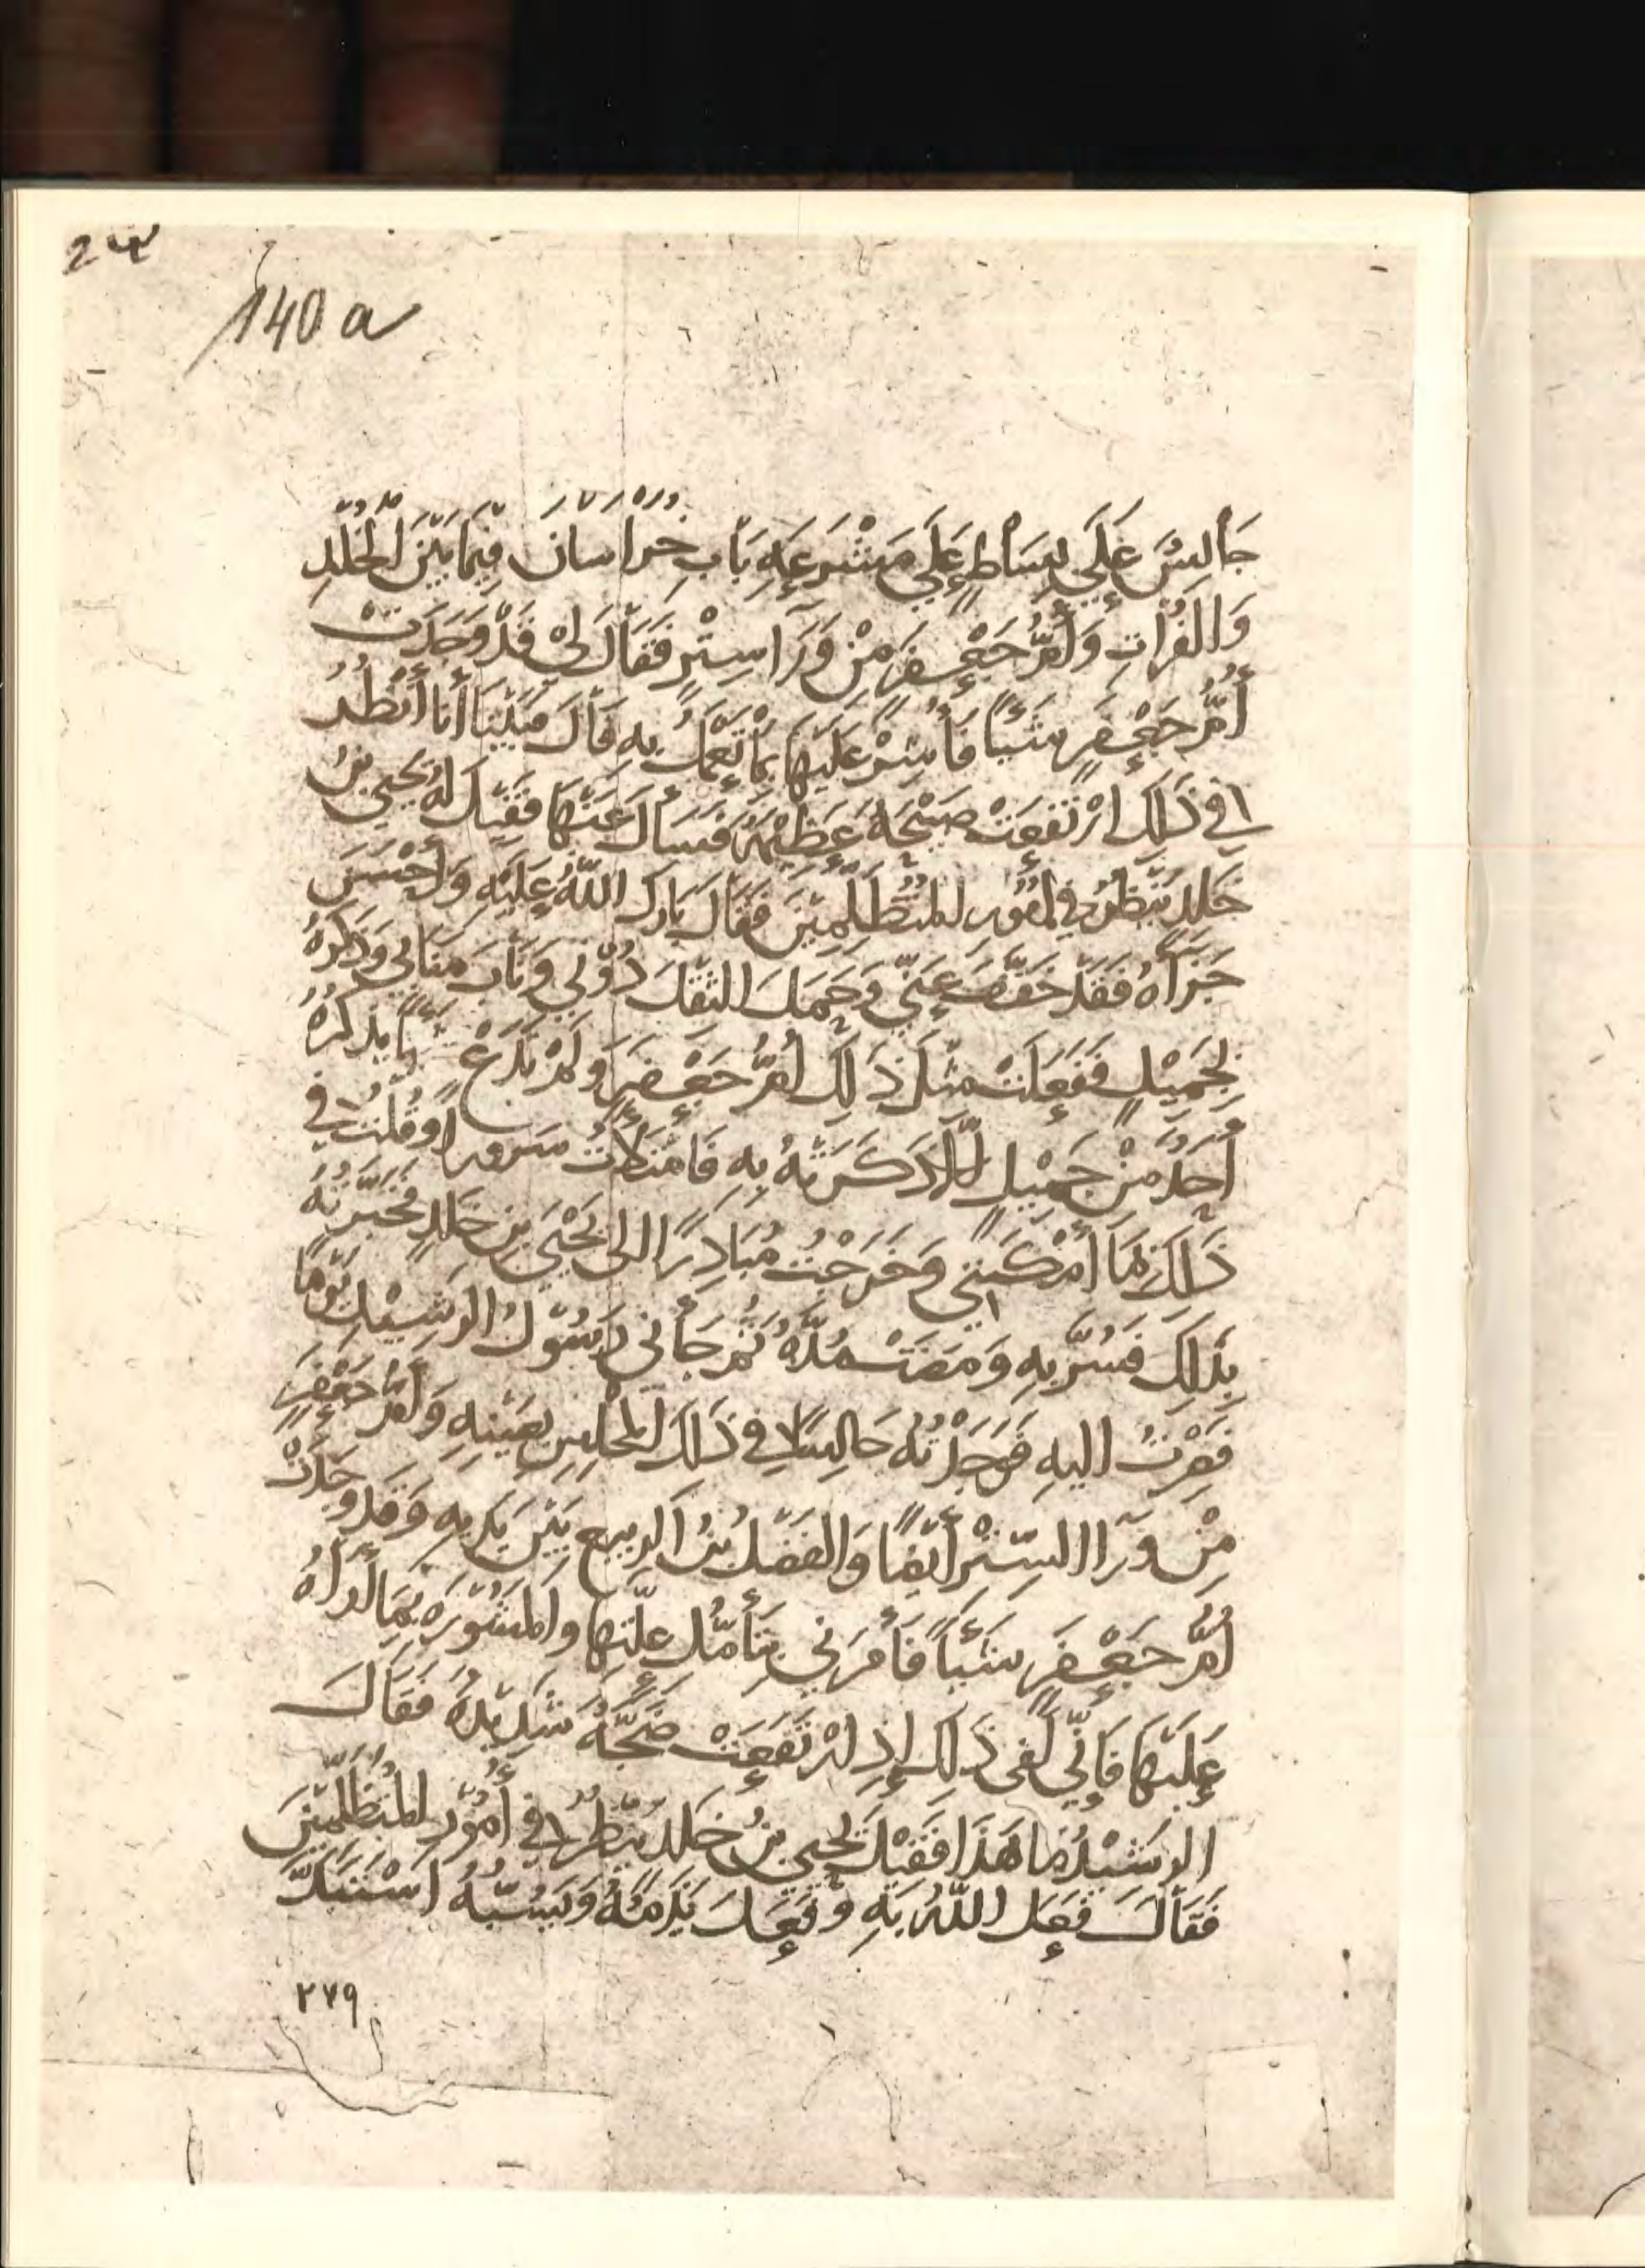 24
140 a
جَالِسٌ عَلَى بِسَاطٍ عَلَى مَشْرَعَةِ بَابِ خُرَاسَانَ فِيْمَا بَيْنَ الْخُلْدِ
وَالْفُرَاتِ وَأُمُّ جَعْفَرٍ مِنْ وَرَآ سِتْرٍ فَقَالَ لِيْ قَدْ وَجَدَتْ
أُمُّ جَعْفَرٍ شَئياً فَأَشِرْ عَلَيْهَا بِمَا تَعْمَلُ بِهِ قَالَ فَبَيْنَا أَنا أَنْظُرُ
فِي ذَلِكَ ارْتَفَعَتْ صَيْحَةٌ عَظِيْمَةٌ فَسَأَلَ عَنْهَا فَقِيْلَ لَهُ يَحْيَى بنُ
خَلِدٍ يَنْظُرُ فِي أُمُوْرِ الْمُتَظَلِّمِيْنَ فَقَالَ بَارَكَ اللّٰهُ عَلَيْهِ وَأَحْسَنَ
جَزَآهُ فَقَدْ خَفَّفَ عَنِّي وَحَمَلَ الثِّقْلَ دُوْنِي وَنَابَ مَنَابِي وَذَكَرَهُ
بِجَمِيْلٍ فَفَعَلَتْ مِثْلَ ذَلِكَ أُمُّ جَعْفَرٍ وَلَمْ تَدَعْ شَيْئًا يَذْكُرُهُ
أَحَدٌ مِنْ جَمِيْلٍ إلَّا ذَكَرَتْهُ بِهِ فَامْتَلَأْتُ سُرُورًا وَقُلْتُ فِي
ذَلِكَ مَا أَمْكَنَنِي وَخَرَجْتُ مُبَادِرًا الى يَحْيَى بنِ خَلِدٍ فَخَبَّرْتُهُ
بِذَلِكَ فَسُرَّ بِهِ وَمَضَتْ مُدَّةٌ ثُمَّ جَأَنِي رَسُوْلُ الرَشِيْدِ يَوْمًا
فَصِرْتُ اليهِ فَوَجَدْتُهُ جَالِسًا فِي ذَلِكَ الْمَجْلِسِ بِعَيْنِهِ وَأُمُّ جَعْفَرٍ
مِنْ وَرَآ السِّتْرِ أَيْضًا وَالفَضْلُ بْنُ الرَبِيعِ بَيْنَ يَدَيهِ وَقَد وَجَدَتْ
أُمُّ جَعْفَرٍ شَئياً فَأَمَرَنِي بِتَأَمُّلِ عِلَّتِهَا وَالْمَشُوْرَةِ بِمَا أَرَاهُ
عَلَيْهَا فَإِنِّي لَفِي ذَلِكَ إِذِ ارْتَفَعَتْ ضَجَّةٌ شَدِيْدَةٌ فَقَالَ
الرَشِيْدُ مَا هَذَا فَقِيْلَ يَحْيَى بنُ خَلِدٍ يَنْظُرُ فِي أُمُوْرِ الْمُتَظَلِّمِيْنَ
فَقَالَ فَعَلَ اللّٰهُ بِهِ وَفَعَلَ يَذُمُّهُ وَيَسُبُّهُ اسْتَبَدَّ
٢٧٩